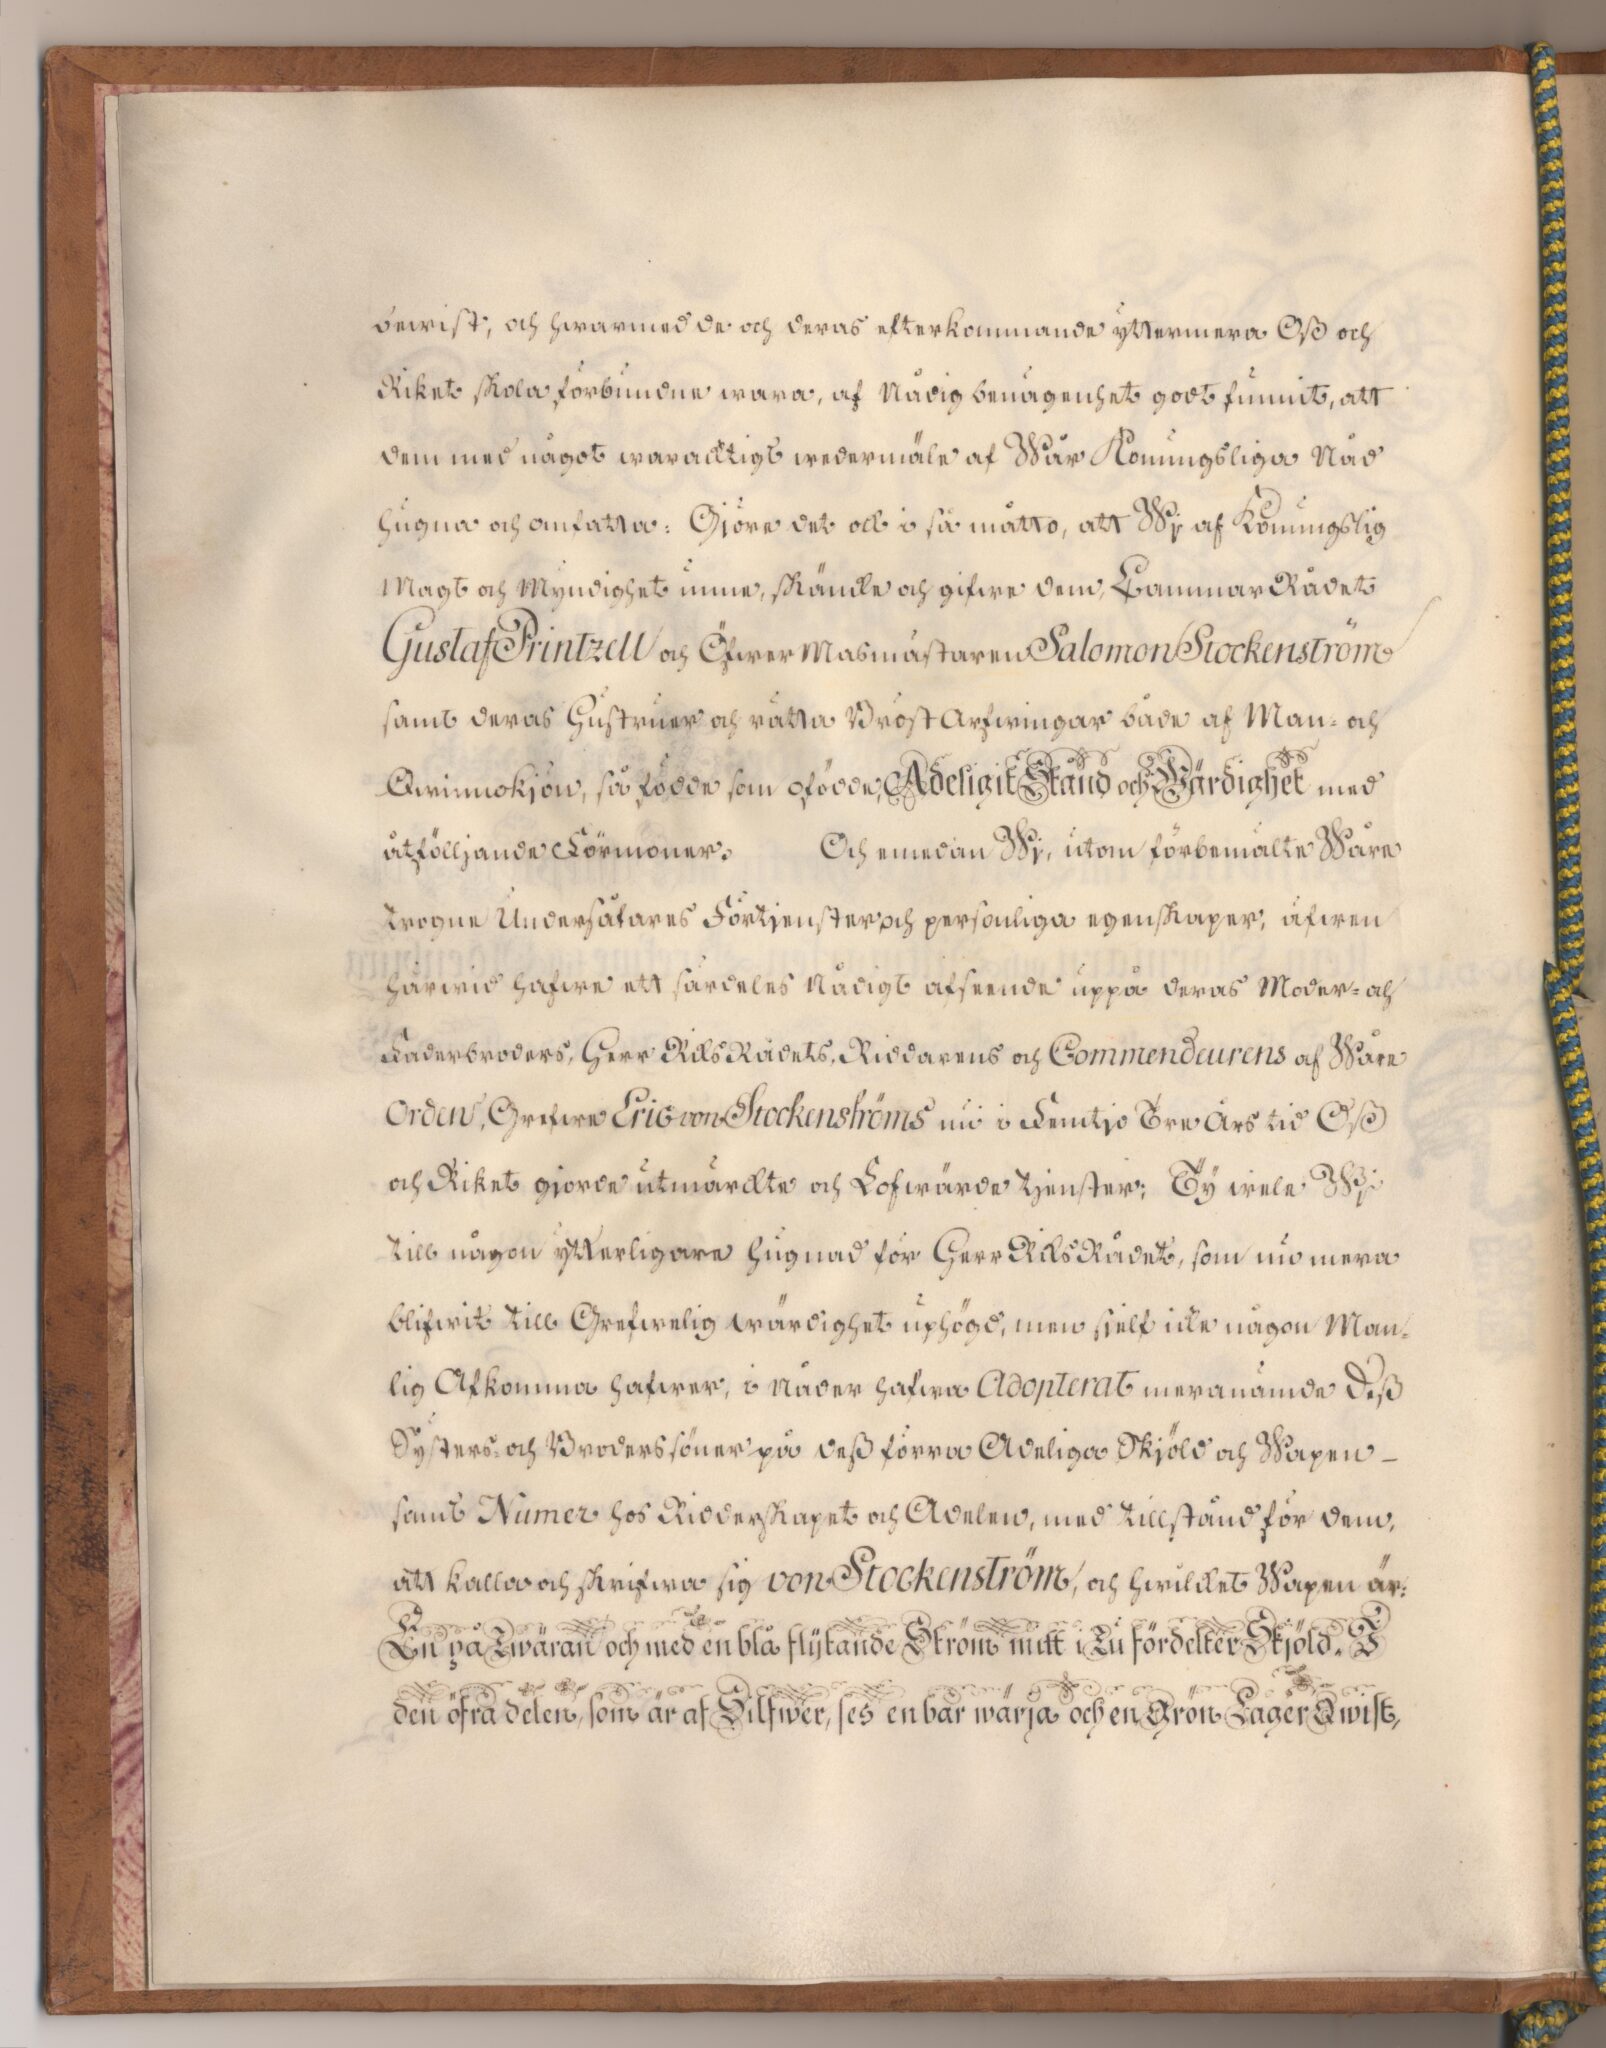 bewist, och hwarmed de och deras efterkommande yttermera Oß och
Riket skola förbundne wara, af Nådig benägenhet godt funnit, att
dem med något waracktigt wedermäle af Wår Konungsliga Nåd
hugna och anfatta: Gjöre det ock i så måtto, att Wj af Konungslig
Magt och Myndighet unne, skäncke och gifwe dem, Cammar Rådet
Gustaf Printzell och Öfwer Masmästaren Salomon Stockenström
samt deras Hustruer och rätta Bröst Arfwingar både af Man- och
Qwinnokjön, så födde som ofödde, Adeligit Stånd och Wärdighet med
åtföljande Förmoner. Och emedan Wj, utom förbemälte Wåre
trogne Undersåtares Förtjenster och personliga egenskaper, äfwen
härwid hafwe ett särdeles Nådigt afseende uppå deras Moder- och
Faderbroders, Herr RiksRådets, Riddarens och Commendeurens af Wåre
Orden, Grefwe Eric von Stockenströms nu i Femtjo Tre Års tid Oß
och Riket gjorde utmärckte och Lofwärde tjenster; Ty wele Wj
till någon ytterligare hugnad för Herr RiksRådet, som nu mera
blifwit till Grefwelig wärdighet uphögd, men sjelf icke någon Man-
lig Afkomma hafwer, i Nåder hafwa Adopterat meranämde Deß
Systers- och Broders söner på deß förra Adeliga Skjöld och Wapen
samt Numer hos Ridderskapet och Adelen, med tillstånd för dem,
att kalla och skrifwa sig von Stockenström, och hwilcket Wapen är:
En på Twären och med en blå flytande Ström mitt i Tu fördelter Skjöld. I
den öfra delen, som är af Silfwer, ses en bar wärja och en Grön Lager Qwist,